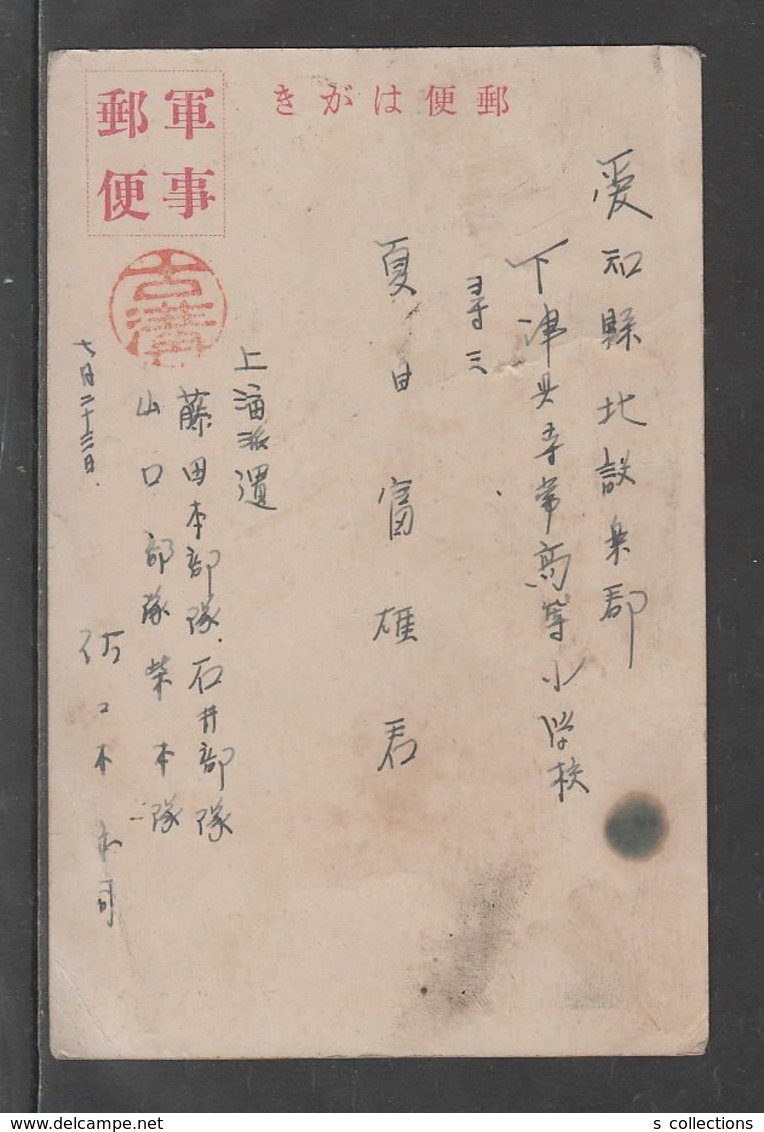 郵便はがき
軍事
郵便
愛知縣北設楽郡
下津具尋常高等小学校
尋三
夏目富雄君
上海派遣
藤田本部隊石井部隊
山口部隊榮本隊
七月二十三日
佐々木
s collections